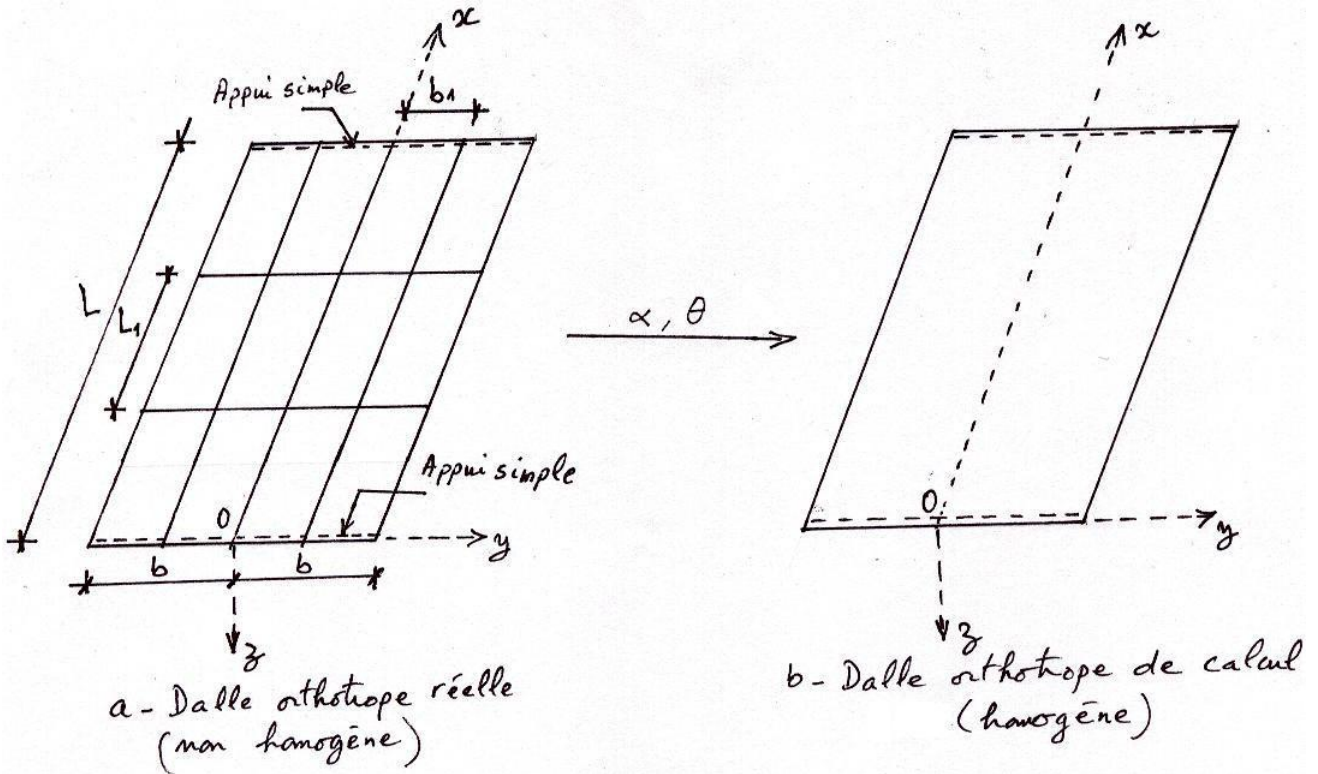 x
Appui simple
b1
L
L1
α, θ
Appui simple
O
y
b
b
z
a - Dalle orthotrope réelle
(non homogène)
x
O
y
z
b - Dalle orthotrope de calcul
(homogène)